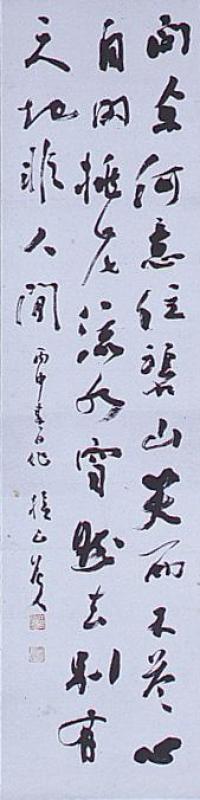 問余何意住碧山笑而不答心
自閑桃花流水窅然去別有
天地非人間 丙申春日作 山人